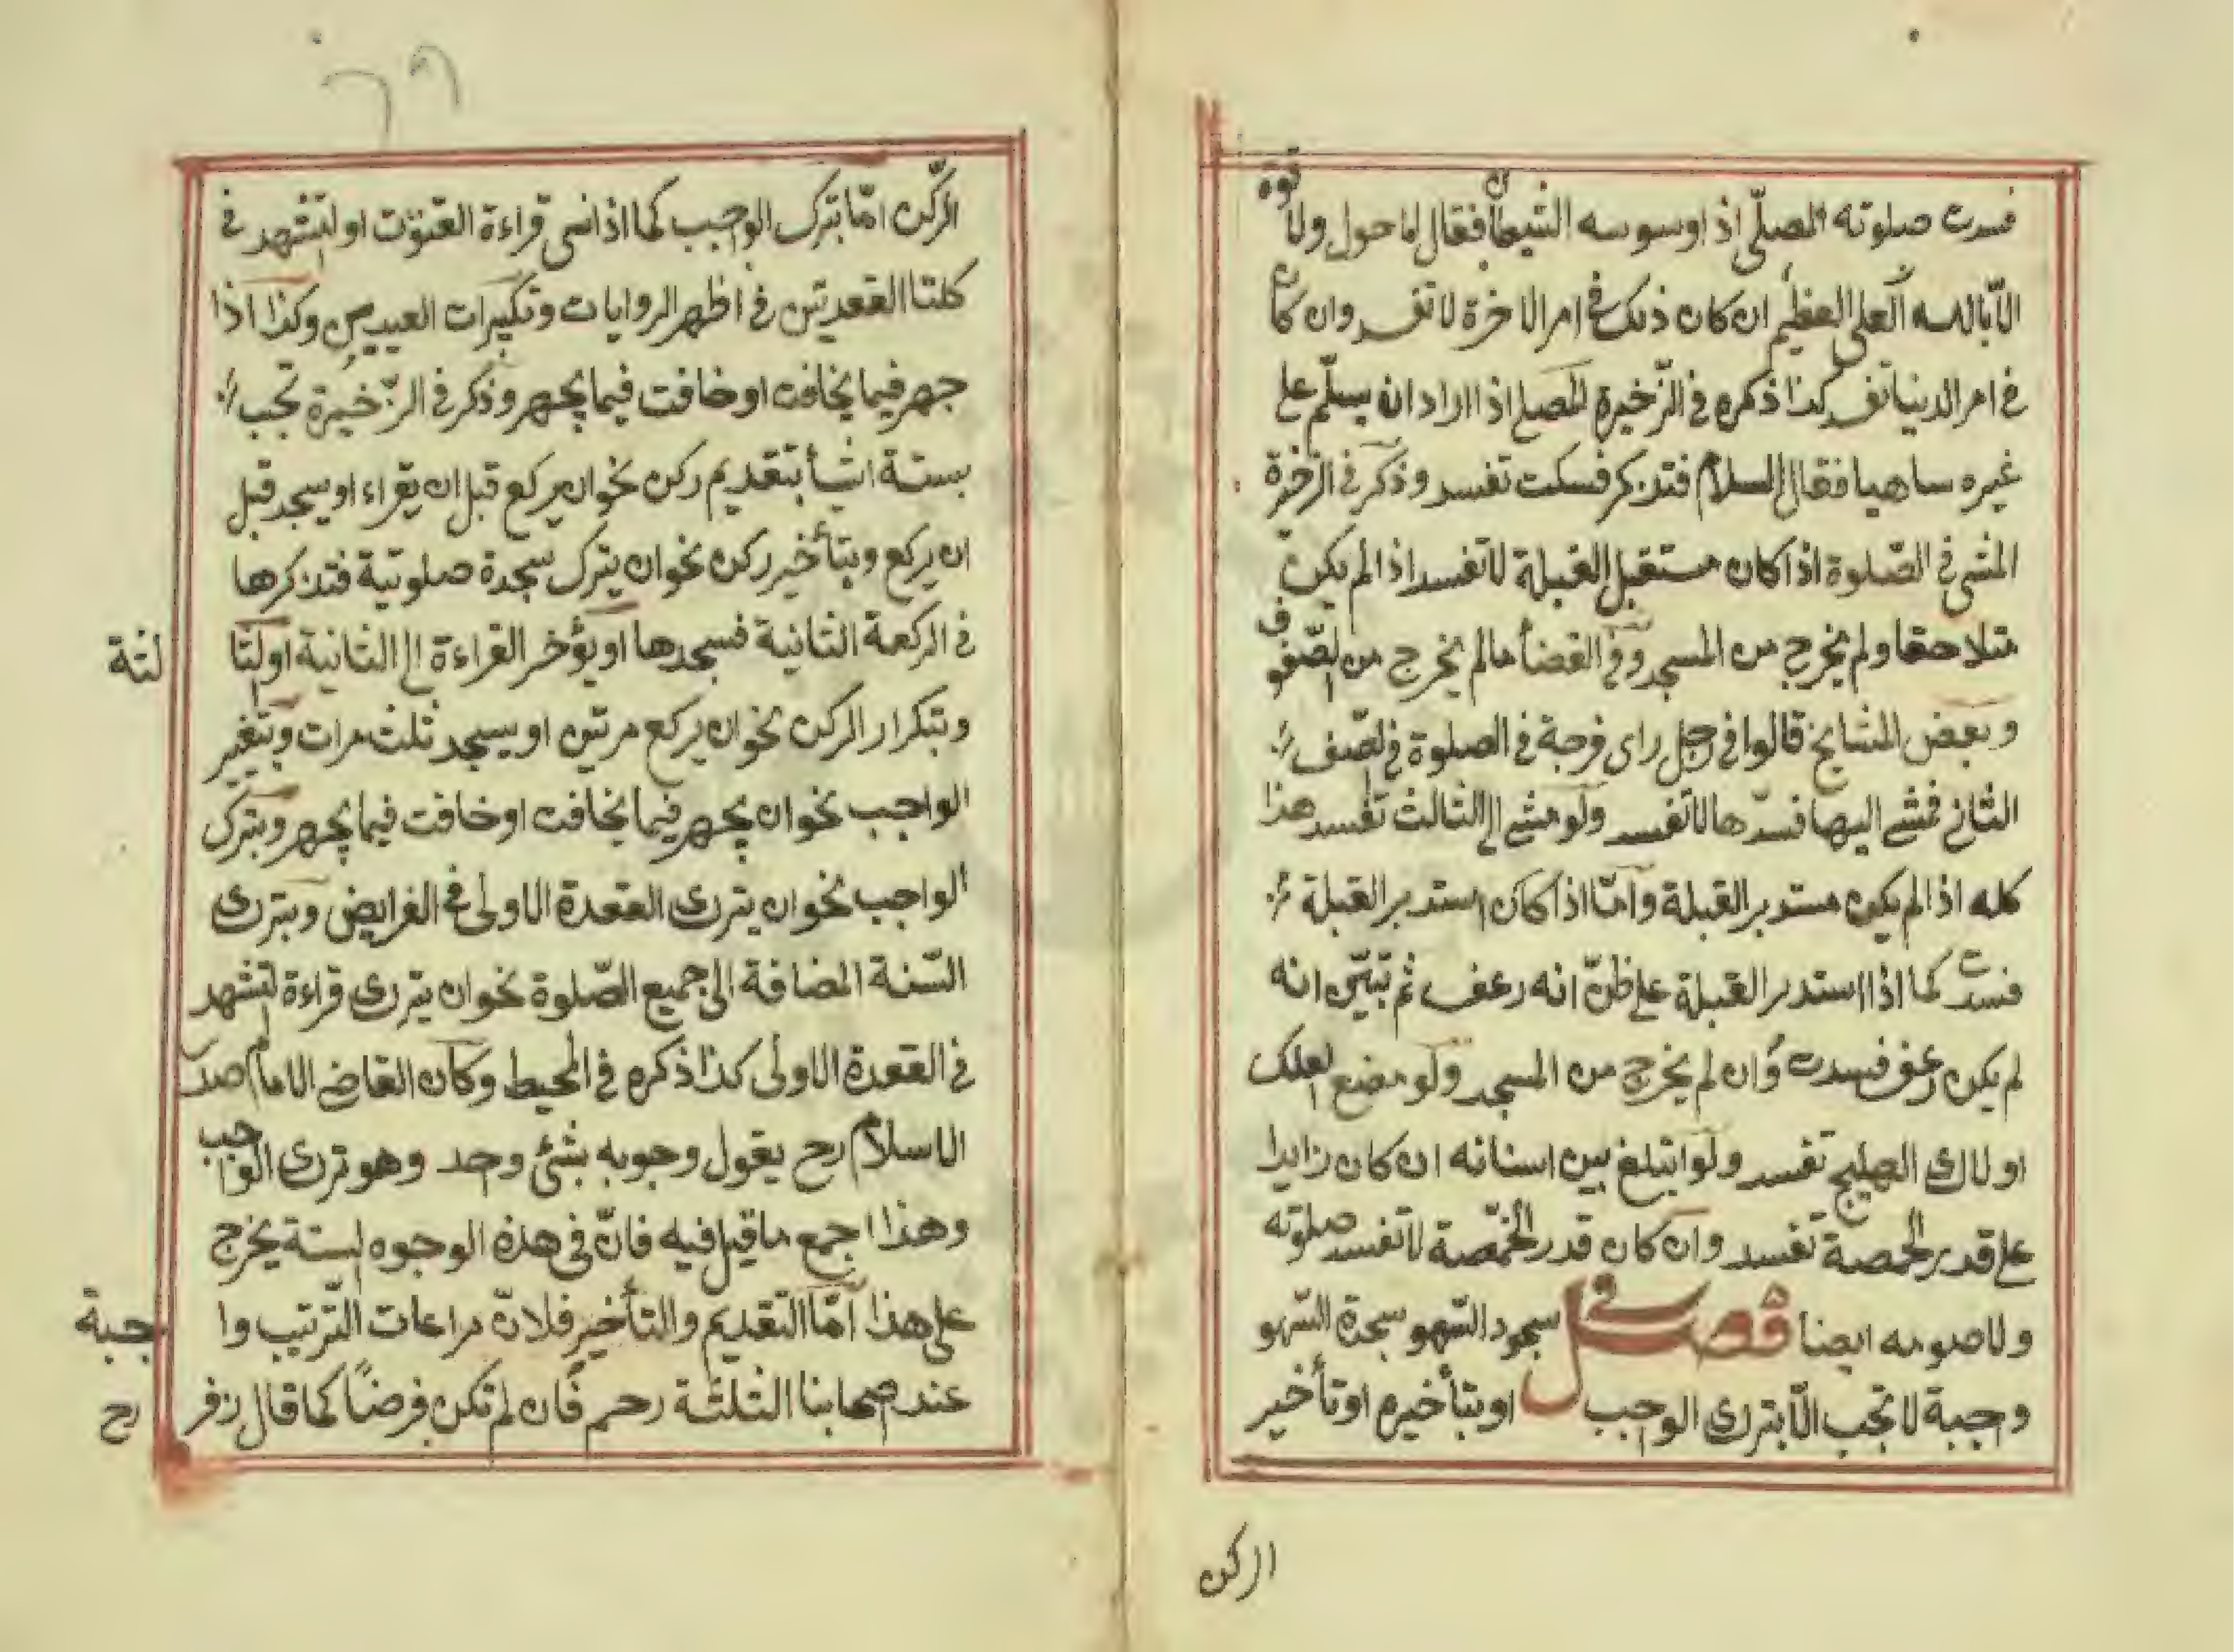 فسدت صلوته المصلّى اذا وسوسه الشيطان فقال لا حول ولا قوة
الّا بالله العلى العظيم ان كان ذلك فى امر الاخرة لا تفسد وان كان
فى امر الدنيا تفسد كذا ذكره فى الذّخيرة المصلى اذا اراد ان يسلّم على
غيره ساهيا فقال السلام فتذكر فسكت تفسد وذكر فى الذخيرة
المشى فى الصّلوة اذا كان مستقبل القبلة لا تفسد اذا لم يكن
متلاحقا ولم يخرج من المسجد وفى الفضأ ما لم يخرج من الصّفوف
وبعض المشايخ قالوا فى رجل راى فرجة فى الصلوة فى الصّف
الثانى فمشى اليها فسدّها لا تفسد ولو مشى الى الثالث تفسد هذا
كله اذا لم يكن مستدبر القبلة وامّا اذا كان استدبر القبلة
فسدت كما اذا استدبر القبلة على ظنّ انه رعف ثم تبيّن انه
لم يكن رعف فسدت وان لم يخرج من المسجد ولو مضع العلك
او لاك الهليج تفسد ولو ابتلغ بين اسنانه ان كان زايدا
على قدر الحمصة تفسد وان كان قدر الحمّصة لا تفسد صلوته
ولا صومه ايضا فصل فى سجود السّهو سجدة السّهو
وجبة لا تجب الّا بترك الوجب او بتأخيره او تأخير
الركن
٦٩
الرّكن امّا بترك الوجب كما اذا نسى قراءة القنوت او التشهد فى
كلتا القعدتين فى اظهر الروايات وتكبيرات العيدين وكذا اذا
جهر فيما يخافت او خافت فيما يجهر وذكر فى الذّخيرة تجب
بستة اشيأ بتقديم ركن نحو ان يركع قبل ان يقراء او يسجد قبل
ان يركع وبتأخير ركن نحو ان يترك سجدة صلوتية فتذكرها
فى الركعة الثانية فسجدها او يؤخر القراءة الى الثانية او الثا لثة
وبتكرار الركن نحو ان يركع مرتين او يسجد ثلث مرات وبتغير
الواجب نحو ان يجهر فيما يخافت او خافت فيما يجهر وبترك
الواجب نحو ان يترك القعدة الاولى فى الفرايض وبترك
السّنة المضافة الى جميع الصّلوة نحو ان يترك قراءة التشهد
فى القعدة الاولى كذا ذكره فى المحيط وكان القاضى الامام صدر
الاسلام رح يقول وجوبه بشئ وحد وهو ترك الواجب
وهذا اجمع ما قيل فيه فانّ فى هذه الوجوه الستة يخرج
على هذا امّا التقديم والتأخير فلانّ مراعات التّرتيب وا جبة
عند اصحابنا الثلثة رحم فان لم تكن فرضًا كما قال زفر رح